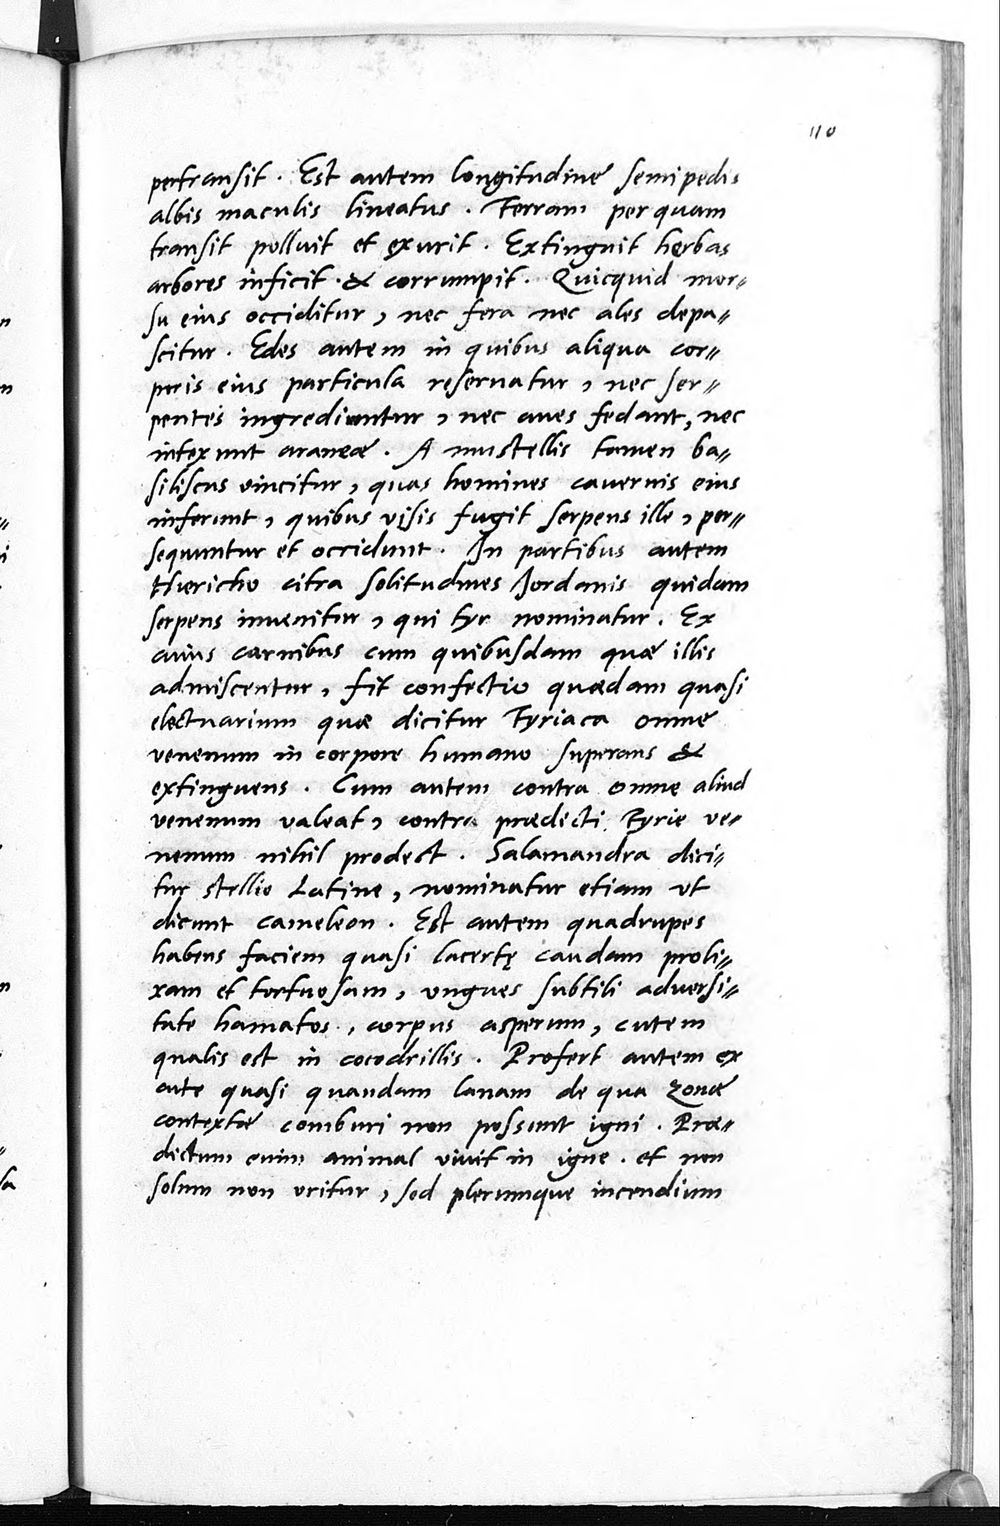 110
pertransit . Est autem longitudine semipedis
albis maculis lineatus . Terram per quam
transit polluit et exurit . Extinguit herbas
arbores inficit . & corrumpit . Quicquid mor=
su eius occiditur , nec fera nec ales depa=
scitur . Edes autem in quibus aliqua cor=
poris eius particula reseruatur , nec ser=
pentes ingrediuntur , nec aues fedant, nec
intexunt araneæ . A mustellis tamen ba=
siliscus vincitur , quas homines cauernis eius
inferunt , quibus visis fugit serpens ille , per=
sequuntur et occidunt . In partibus autem
Hiericho citra solitudines Jordanis quidam
serpens inuenitur , qui tyr nominatur . Ex
cuius carnibus cum quibusdam quæ illis
admiscentur , fit confectio quædam quasi
electuarium quæ dicitur Tyriaca omne
venenum in corpore humano superans &
extinguens . Cum autem contra omne aliud
venenum valeat , contra prædicti Tyrie ve=
nenum nihil prodest . Salamandra dici=
tur stellio Latine , nominatur etiam vt
dicunt cameleon . Est autem quadrupes
habens faciem quasi lacertę caudam proli=
xam et tortuosam , vngues subtili aduersi=
tate hamatos , corpus asperum , cutem
qualis est in cocodrillis . Profert autem ex
cute quasi quandam lanam de qua zonæ
contextæ comburi non possunt igni . Præ=
dictum enim animal viuit in igne . et non
solum non vritur , sed plerumque incendium